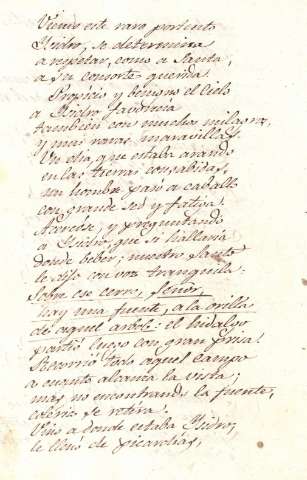 Viendo este raro portento
Ysidro, se determina
a respetar, como a Santa,
a su consorte querida.
Propicio y benigno el Cielo
a Ysidro favorecia
tambien con muchos milagros,
y mui raras maravillas.
Un dia, que estaba arando
en las tierras consabidas
un hombre paso a caballo
con grande sed y fatiga.
Acercóse, y preguntando
a Ysidro, que si hallaria
donde beber; nuestro Santo
le dijo con voz tranquila:
Sobre ese cerro, Señor,
hay una fuente, a la orilla
de aquel arbol: el hidalgo
partió luego con gran prisa.
Recorrió todo aquel campo
a cuanto alcanza la vista;
mas no encontrando la fuente,
colerico se retira.
Vino a donde estaba Ysidro,
le llenó de picardias,